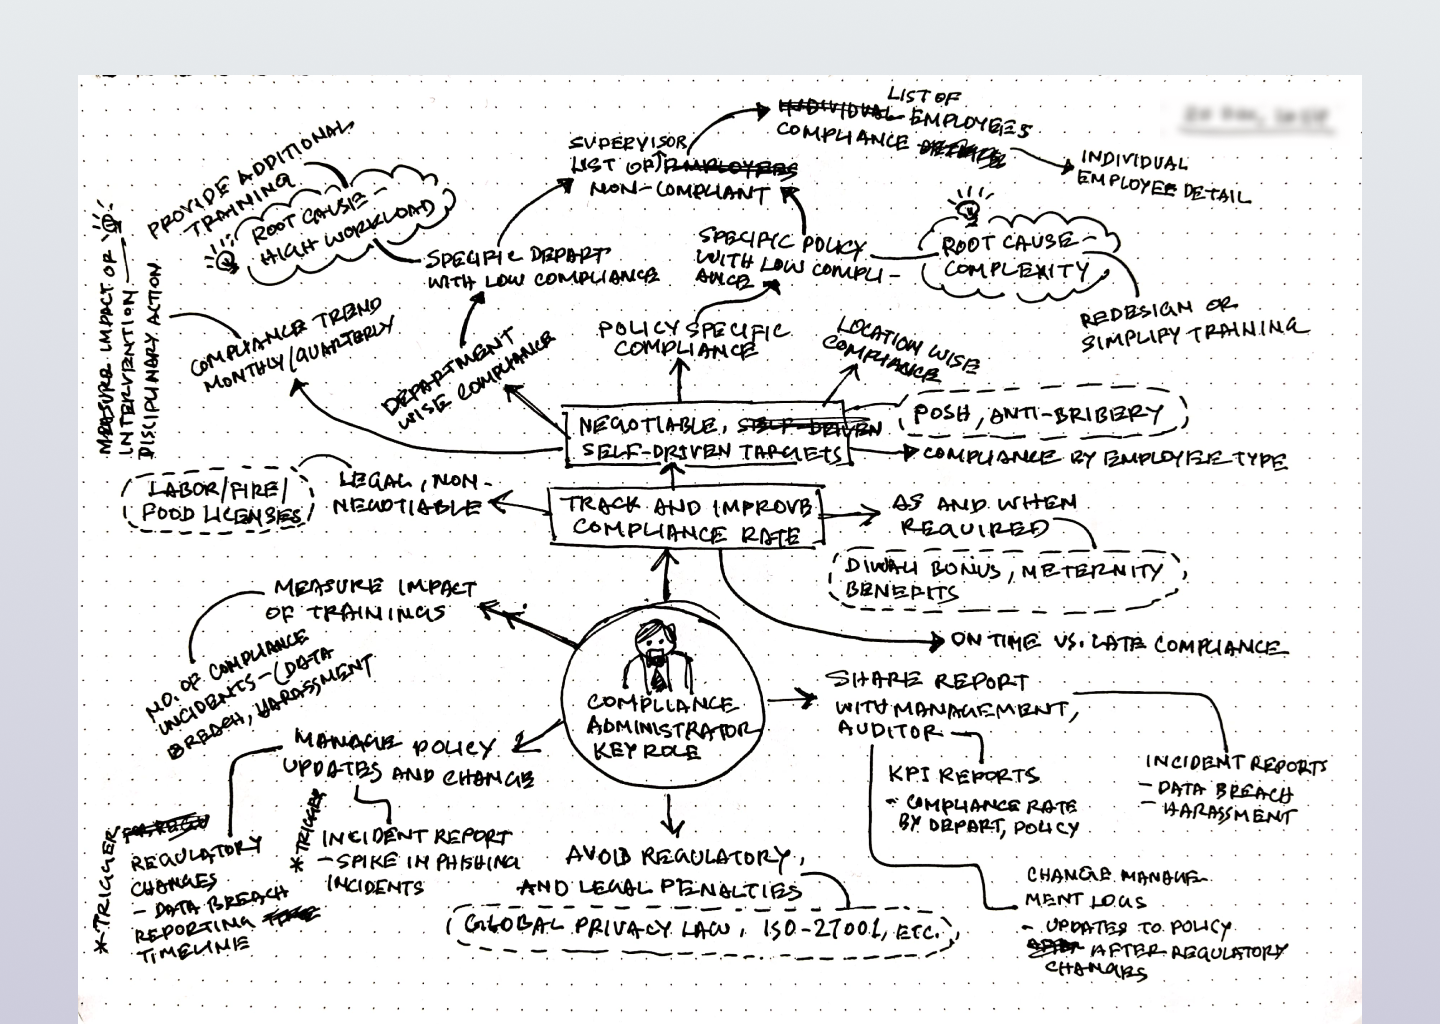 LIST OF
INDIVIDUAL EMPLOYEES
COMPLIANCE
INDIVIDUAL
EMPLOYEE DETAIL
SUPERVISOR
LIST OF EMPLOYEES
NON-COMPLIANT
PROVIDE ADDITIONAL
TRAINING
ROOT CAUSE -
HIGH WORKLOAD
SPECIFIC DEPART
WITH LOW COMPLIANCE
SPECIFIC POLICY
WITH LOW COMPLI-
ANCE
ROOT CAUSE -
COMPLEXITY
REDESIGN OR
SIMPLIFY TRAINING
MEASURE IMPACT OF
INTERVENTION
DISCIPLINARY ACTION
COMPLIANCE TREND
MONTHLY/QUARTERLY
DEPARTMENT
WISE COMPLIANCE
POLICY SPECIFIC
COMPLIANCE
LOCATION WISE
COMPLIANCE
NEGOTIABLE, SELF-DRIVEN
SELF-DRIVEN TARGETS
POSH, ANTI-BRIBERY
COMPLIANCE BY EMPLOYEE TYPE
LABOR/FIRE/
FOOD LICENSES
LEGAL, NON-
NEGOTIABLE
TRACK AND IMPROVE
COMPLIANCE RATE
AS AND WHEN
REQUIRED
DIWALI BONUS, METERNITY
BENEFITS
ON TIME VS. LATE COMPLIANCE
MEASURE IMPACT
OF TRAININGS
NO. OF COMPLIANCE
INCIDENTS - (DATA
BREACH, HARASSMENT
COMPLIANCE
ADMINISTRATOR
KEY ROLE
SHARE REPORT
WITH MANAGEMENT,
AUDITOR
KPI REPORTS
- COMPLIANCE RATE
BY DEPART, POLICY
INCIDENT REPORTS
- DATA BREACH
- HARASSMENT
CHANGE MANAGE-
MENT LOGS
- UPDATES TO POLICY
AFTER REGULATORY
CHANGES
MANAGE POLICY
UPDATES AND CHANGE
*TRIGGER
REGULATORY
CHANGES
- DATA BREACH
REPORTING
TIMELINE
*TRIGGER
INCIDENT REPORT
- SPIKE IN PHISHING
INCIDENTS
AVOID REGULATORY,
AND LEGAL PENALTIES
GLOBAL PRIVACY LAW, ISO-27001, ETC.